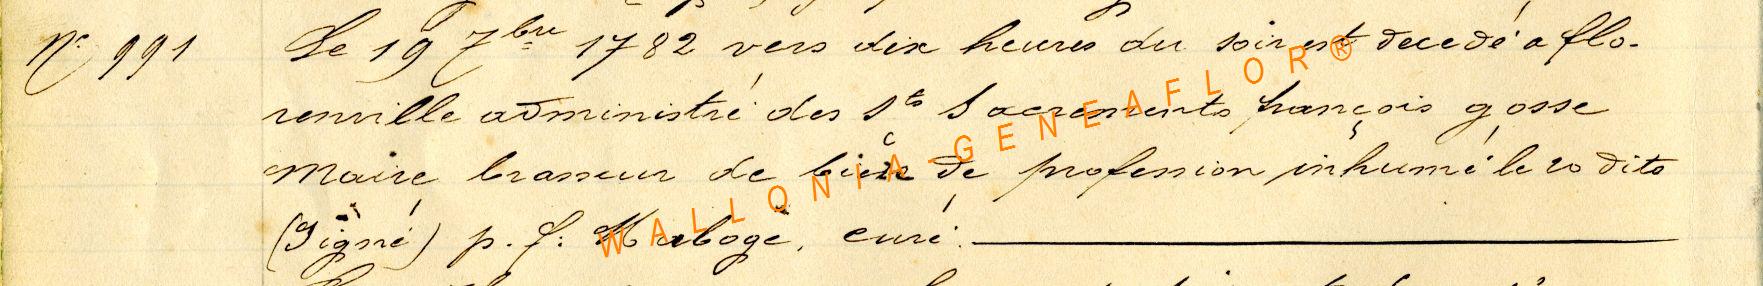 N° 991 Le 19 7bre 1782 vers dix heures du soir est decedé a flo-
renville administré des Sts Sacrements françois gosse
Maire brasseur de bière de profession inhumé le 20 dito
(Signé) p. f: Maboge, curé.
WALLONIA-GENEAFLOR®